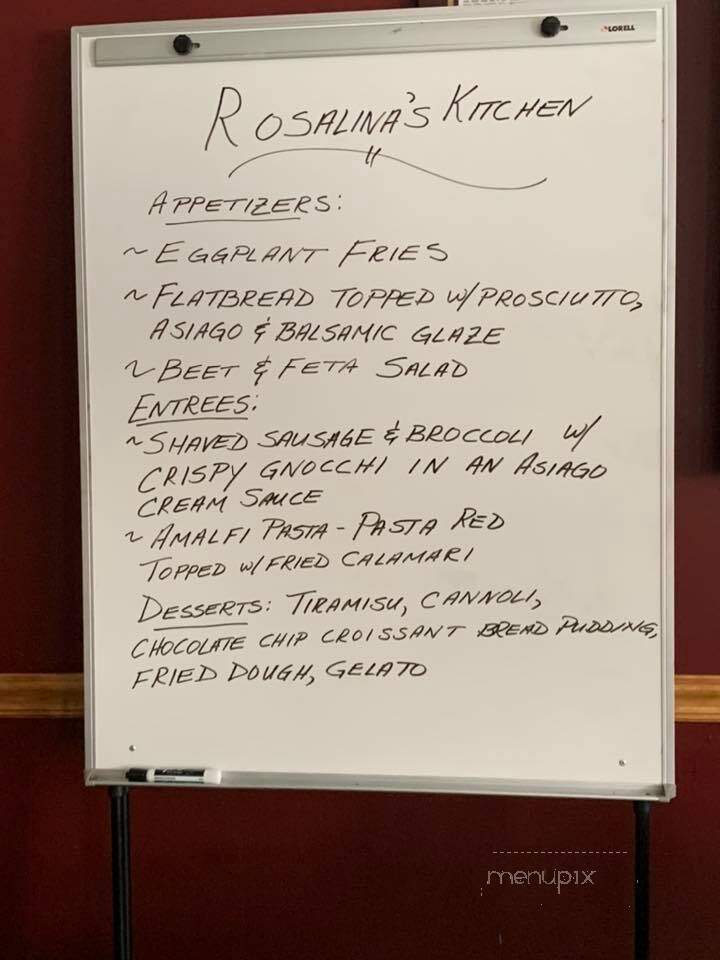 LORELL
ROSALINA'S KITCHEN
APPETIZERS:
~ EGGPLANT FRIES
~ FLATBREAD TOPPED W/PROSCIUTTO,
ASIAGO & BALSAMIC GLAZE
~ BEET & FETA SALAD
ENTREES:
~ SHAVED SAUSAGE & BROCCOLI W/
CRISPY GNOCCHI IN AN ASIAGO
CREAM SAUCE
~ AMALFI PASTA - PASTA RED
TOPPED W/ FRIED CALAMARI
DESSERTS: TIRAMISU, CANNOLI,
CHOCOLATE CHIP CROISSANT BREAD PUDDING,
FRIED DOUGH, GELATO
menupix